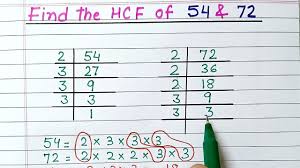 Find the HCF of 54 & 72
2 54 2 72
3 27 2 36
3 9 2 18
3 3 3 9
1 3 3
54 = 2 × 3 × 3 × 3
72 = 2 × 2 × 2 × 3 × 3